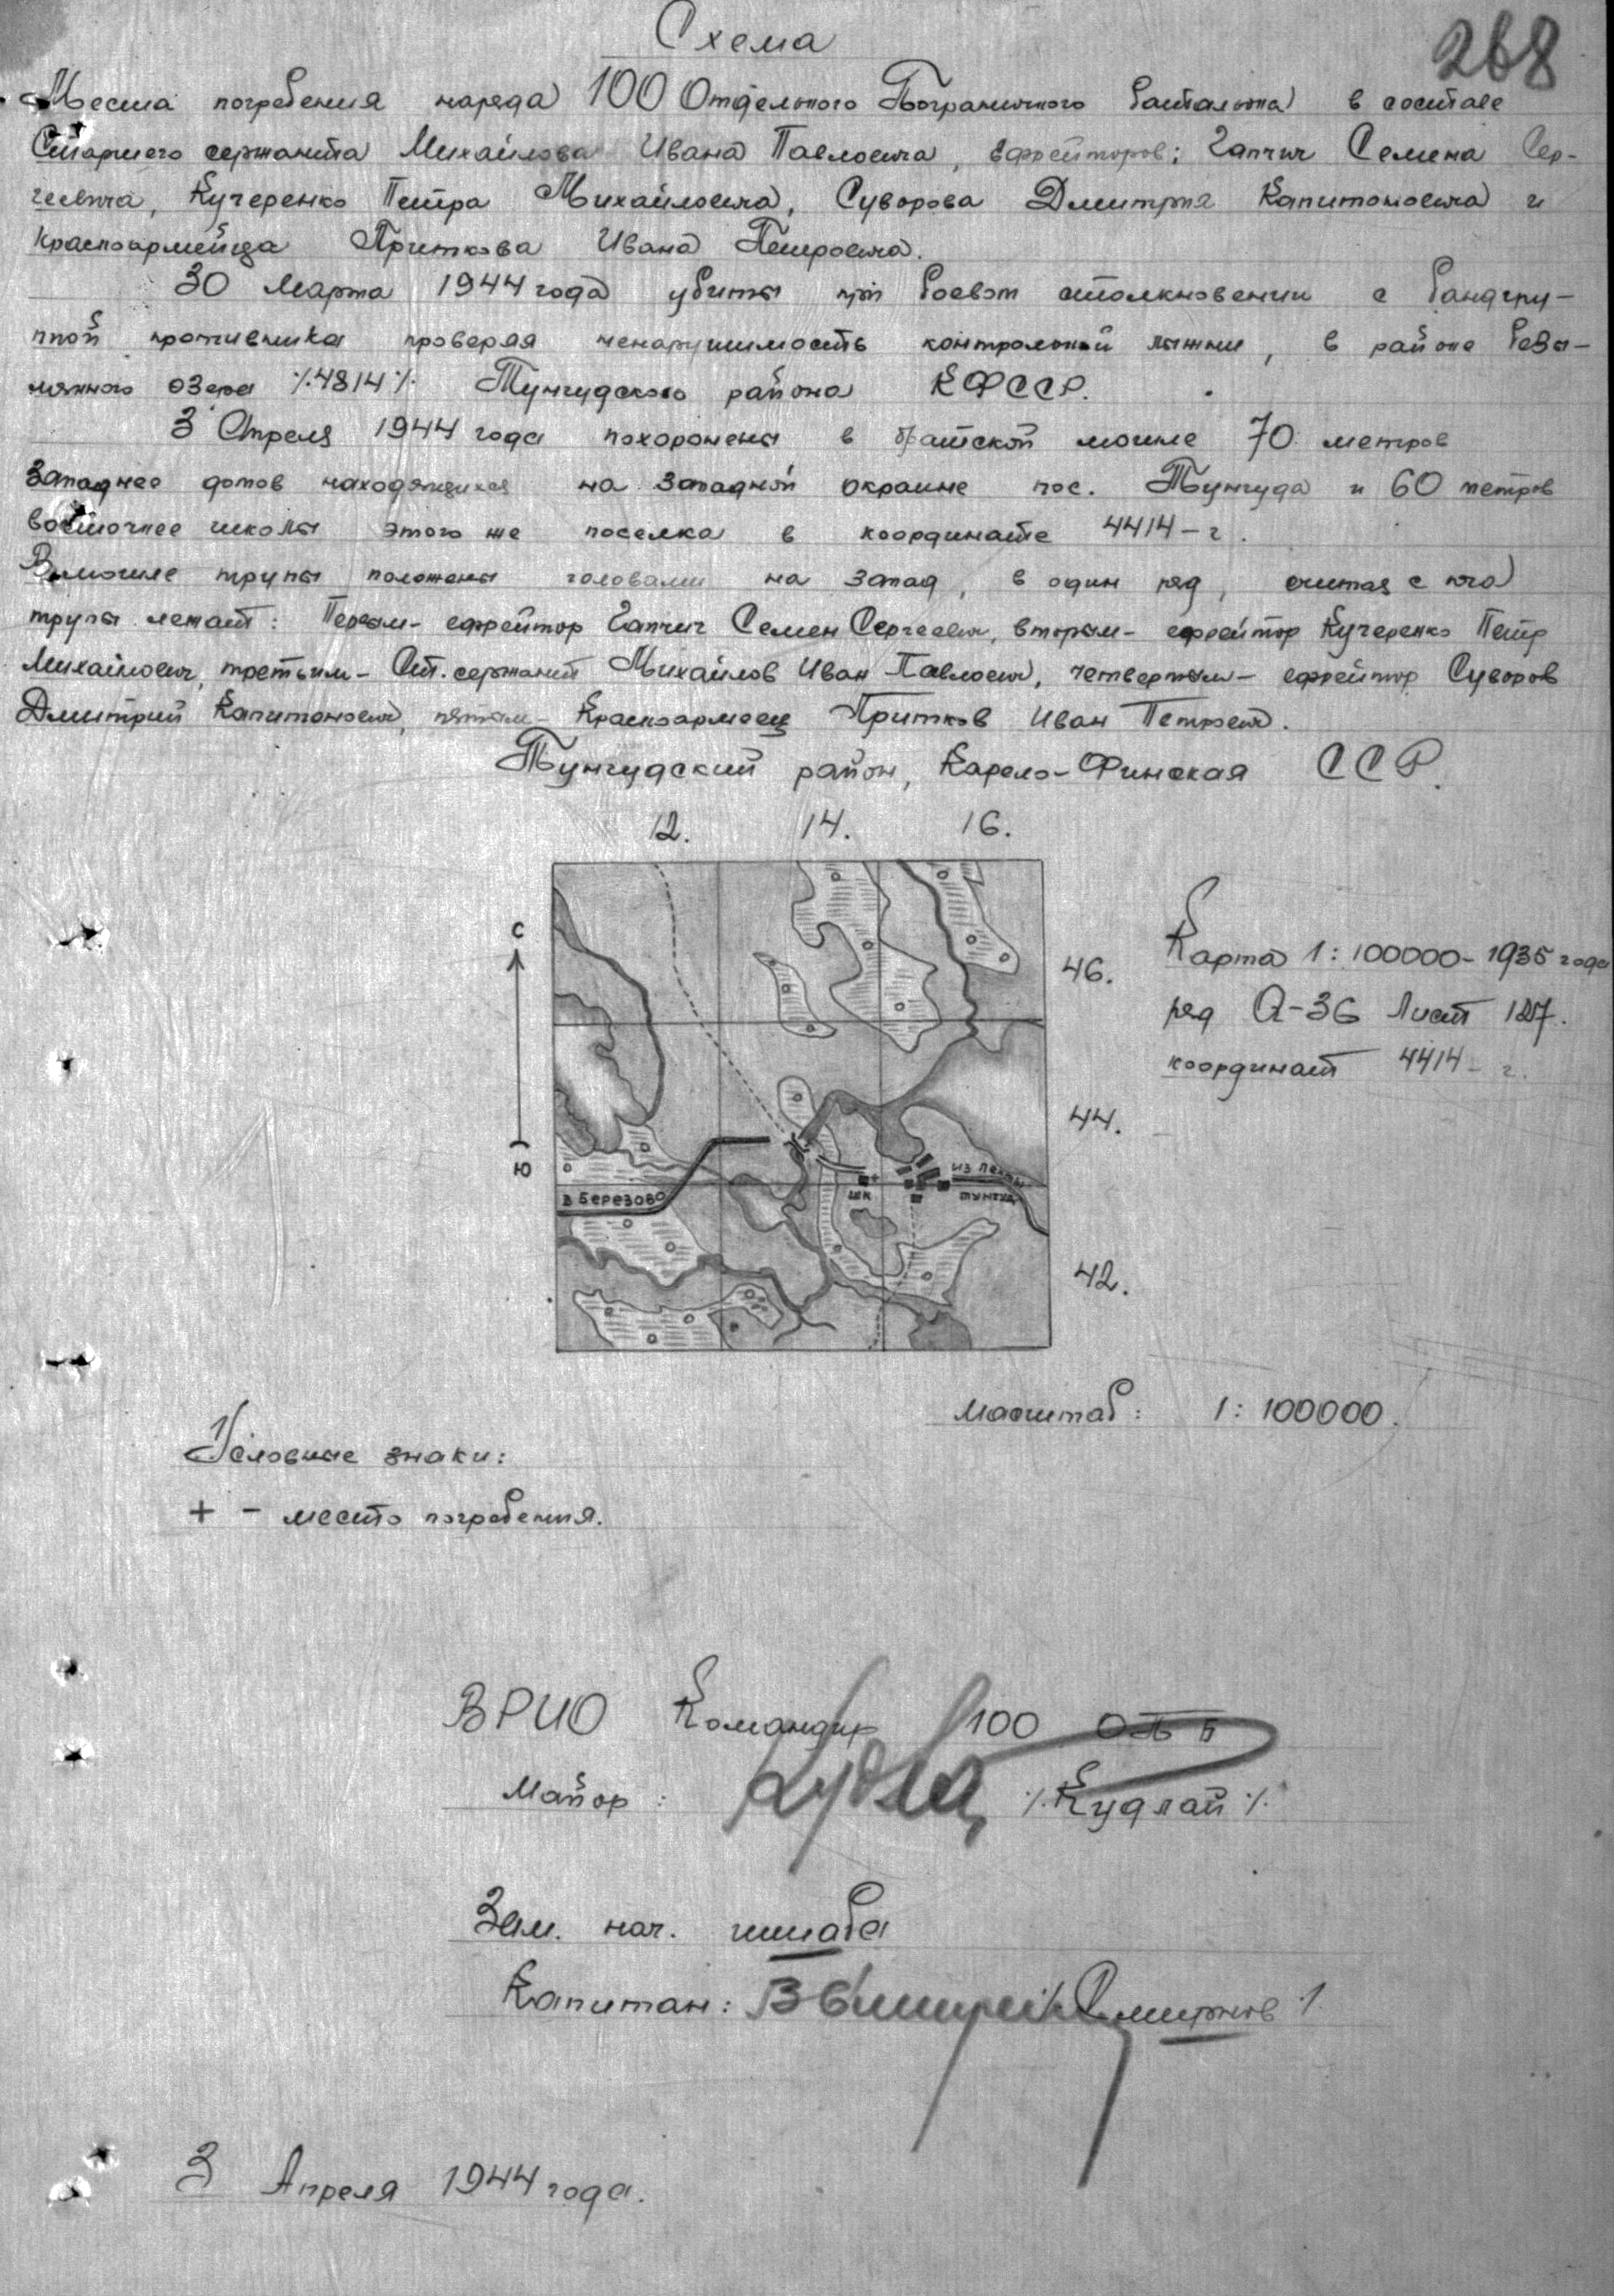 Схема
268
Места погребения наряда 100 Отдельного Пограничного батальона в составе
Старшего сержанта Михайлова Ивана Павловича, ефрейторов: Гапчич Семена Сер-
геевича, Кучеренко Петра Михайловича, Суворова Дмитрия Капитоновича и
Красноармейца Приткова Ивана Петровича.
30 Марта 1944 года убиты при боевом столкновении с бандгру-
ппой противника проверяя ненарушимость контрольной лыжни, в районе безы-
мянного озера /4814/ Тунгудского района КФССР.
3 Апреля 1944 года похоронены в братской могиле 70 метров
западнее домов находящихся на западной окраине пос. Тунгуда и 60 метров
восточнее школы этого же поселка в координате 4414-г.
В могиле трупы положены головами на запад, в один ряд, считая с юга
трупы лежат: Первым- ефрейтор Гапчич Семен Сергеевич, вторым- ефрейтор Кучеренко Петр
Михайлович, третьим- Ст. сержант Михайлов Иван Павлович, четвертым- ефрейтор Суворов
Дмитрий Капитонович, пятым- Красноармеец Притков Иван Петрович.
Тунгудский район, Карело-Финская ССР.
12. 14. 16.
С
46.
Карта 1:100000-1935 года
ряд Q-36 Лист 127.
координат 4414-г.
44.
Ю
в Березово
шк
из
Тунгуд
42.
масштаб: 1:100000.
Условные знаки:
+ - место погребения.
ВРИО Командир 100 ОПБ
Майор: /Кудлай/
Зам. нач. штаба
Капитан: /Смирнов/
3 Апреля 1944 года.